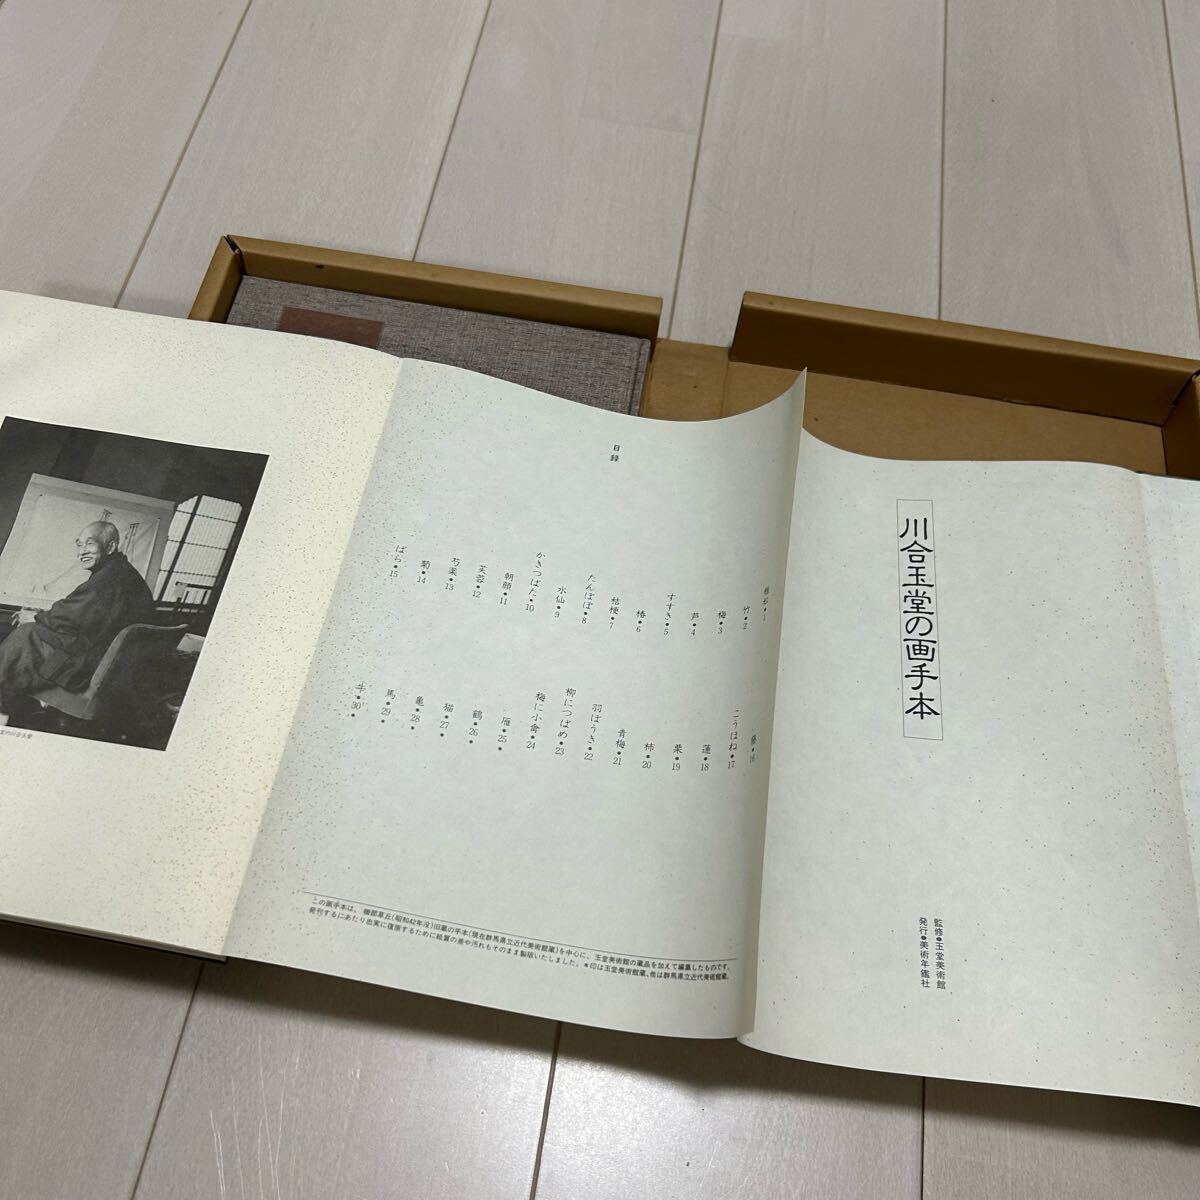 川合玉堂の画手本
監修●玉堂美術館
発行●美術年鑑社
目録
竹●2
梅●3
芦●4
すすき●5
椿●6
桔梗●7
たんぽぽ●8
水仙●9
かきつばた●10
朝顔●11
芙蓉●12
芍薬●13
菊●14
ばら●15
藤●16
こうほね●17
蓮●18
栗●19
柿●20
青梅●21
羽ぼうき●22
柳につばめ●23
梅に小禽●24
雁●25
鶴●26
猫●27
亀●28
馬●29
牛●30
この画手本は、磯部草丘(昭和42年没)旧蔵の手本(現在群馬県立近代美術館蔵)を中心に、玉堂美術館の蔵品を加えて編集したものです。
発刊するにあたり出来に復原するために紙質の差や汚れもそのまま製版いたしました。●印は玉堂美術館蔵、他は群馬県立近代美術館蔵。